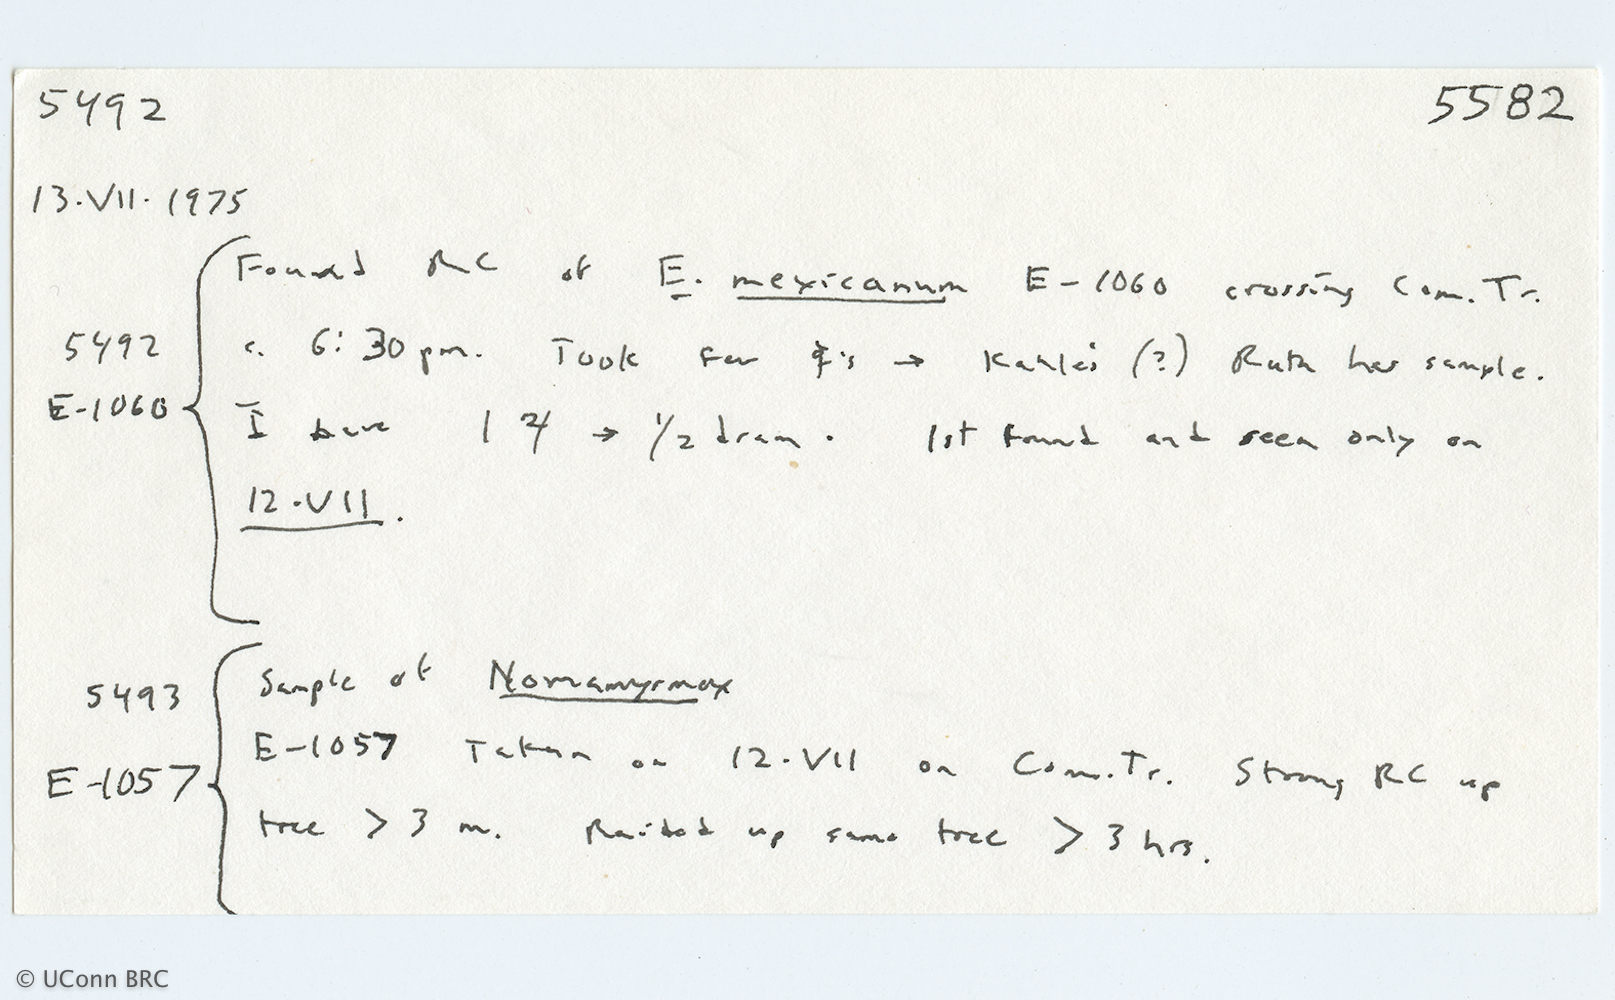 5492 5582
13.VII.1975
Found RC of E. mexicanum E-1060 crossing Com. Tr.
5492 c. 6:30 pm. Took few ☿'s → Kahle's (?) Ruth has sample.
E-1060 I have 1 ♃ → 1/2 dram. 1st found and seen only on
12.VII.
5493 Sample of Nomamyrmex
E-1057 E-1057 Taken on 12.VII on Com. Tr. Strong RC up
tree > 3 m. Raided up same tree > 3 hrs.
© UConn BRC